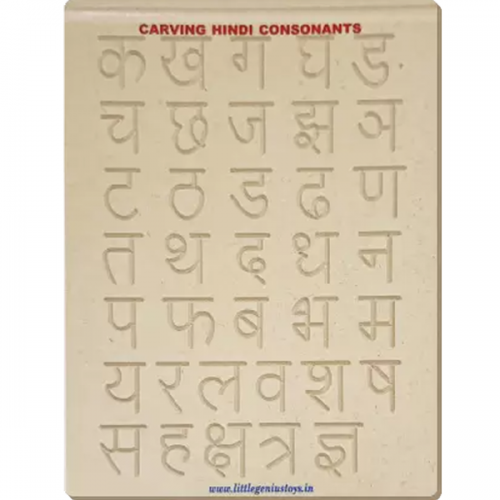 CARVING HINDI CONSONANTS
क ख ग घ ङ
च छ ज झ ञ
ट ठ ड ढ ण
त थ द ध न
प फ ब भ म
य र ल व श ष
स ह क्ष त्र ज्ञ
www.littlegeniustoys.in